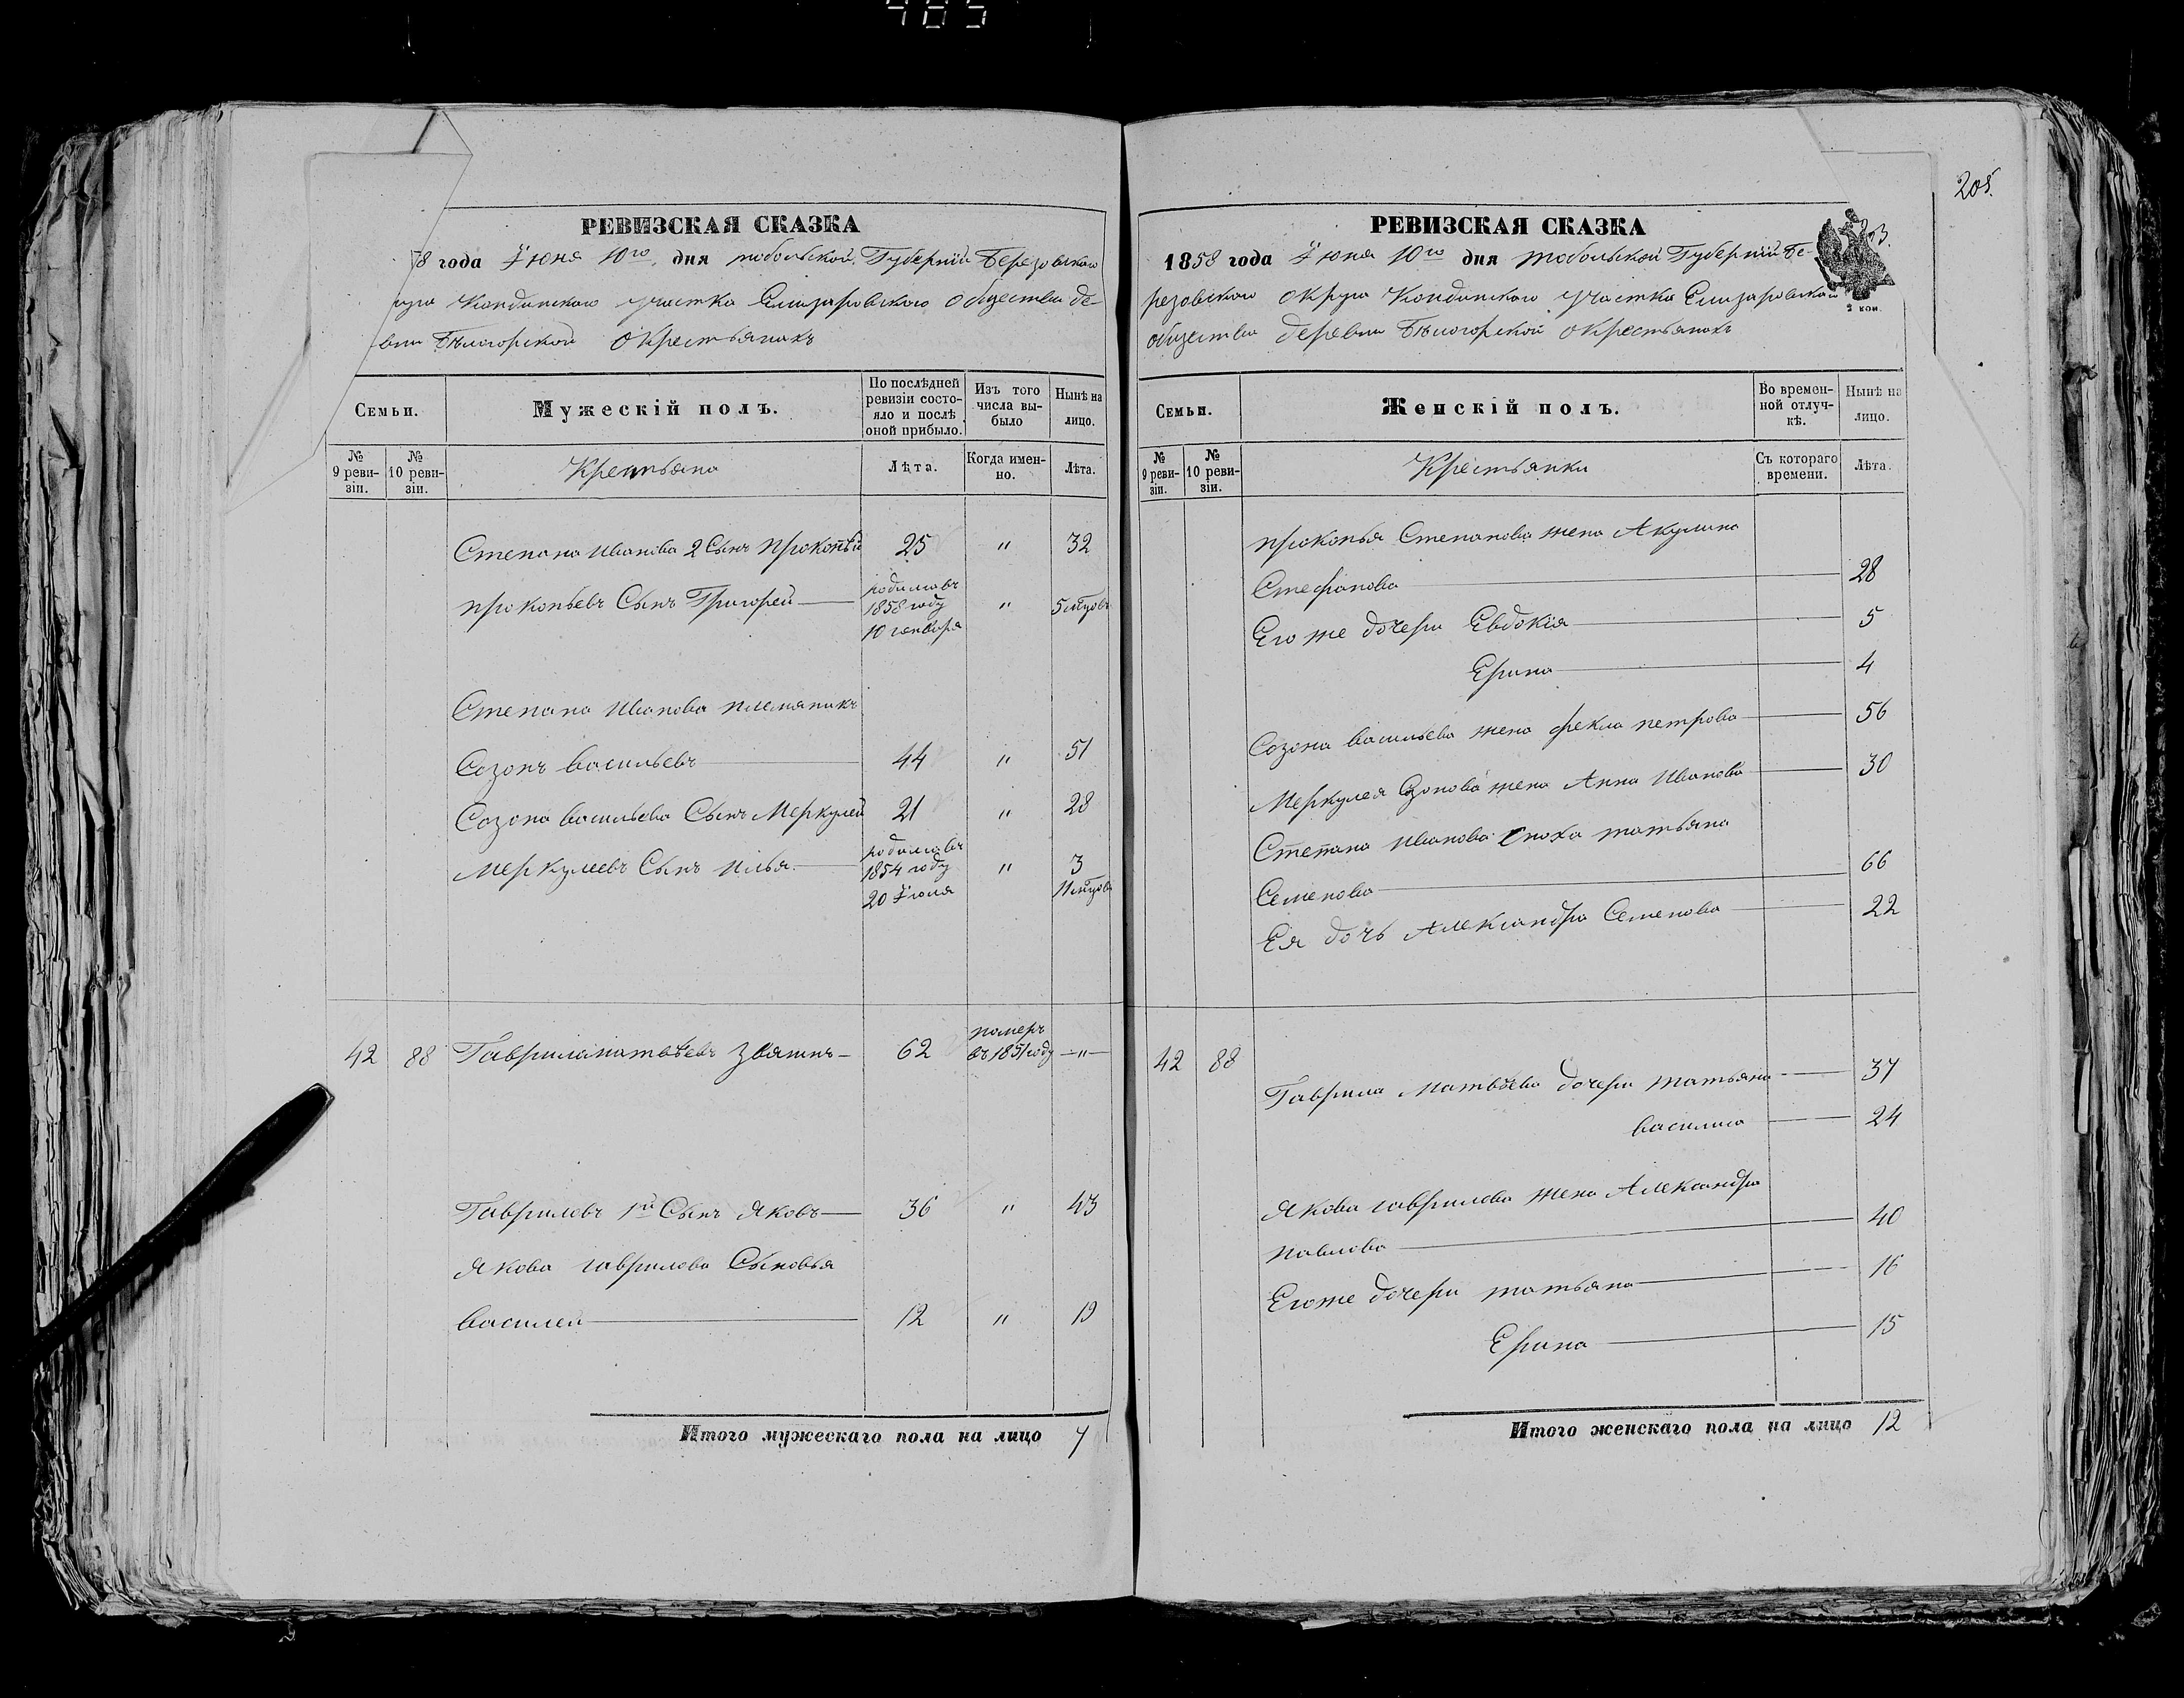 485
205.
РЕВИЗСКАЯ СКАЗКА
8 года Іюня 10го дня тобольской Губерніи Березовскаго
Кондинскаго участка Елизаровскаго общества де-
вни Бѣлогорской окрестьянахъ
Семьи.
Мужескій полъ.
По послѣдней ревизіи состо-
яло и послѣ оной прибыло.
Изъ того числа вы-
было
Нынѣ на лицо.
№ 9 реви-
зіи.
№ 10 реви-
зіи.
Крестьяна
Лѣта.
Когда имен-
но.
Лѣта.
Степана Иванова 2 Сынъ Прокопѣй 25 " 32
прокопьевъ Сынъ Григорей родилсявъ 1858 году 10 генваря " 5 мѣсцовъ
Степана Иванова племяникъ
Созонъ васильевъ 44 " 51
Созона васильева Сынъ Меркулей 21 " 28
меркулевъ Сынъ Илья родилсявъ 1854 году 20 Іюля " 3 11 мѣсцовъ
42 88 Гаврила матвѣевъ Звягинъ 62 померъ въ 1851 году "
Гавриловъ 1й Сынъ Яковъ 36 " 43
Якова гаврилова Сыновья
василей 12 " 19
Итого мужескаго пола на лицо 7
РЕВИЗСКАЯ СКАЗКА
1858 года Іюня 10го дня тобольской Губерніи Бе-
резовскаго округа Кондинскаго участка Елизаровскаго
2 коп.
общества деревни Бѣлогорской окрестьянахъ
Семьи.
Женскій полъ.
Во времен-
ной отлуч-
кѣ.
Нынѣ на лицо.
№ 9 реви-
зіи.
№ 10 реви-
зіи.
Крестьянки
Съ котораго времени.
Лѣта.
прокопья Степанова жена Акулина
Стефанова 28
Его же дочери Евдокія 5
Ерина 4
Созона васильева жена фекла петрова 56
Меркулея Созонова жена Анна Иванова 30
Степана Иванова сноха татьяна
Семенова 66
Ея дочь Александра Семенова 22
42 88 Гаврила Матвѣева дочери татьяна 37
василиса 24
Якова гаврилова жена Александра
павлова 40
Егоже дочери татьяна 16
Ерина 15
Итого женскаго пола на лицо 12